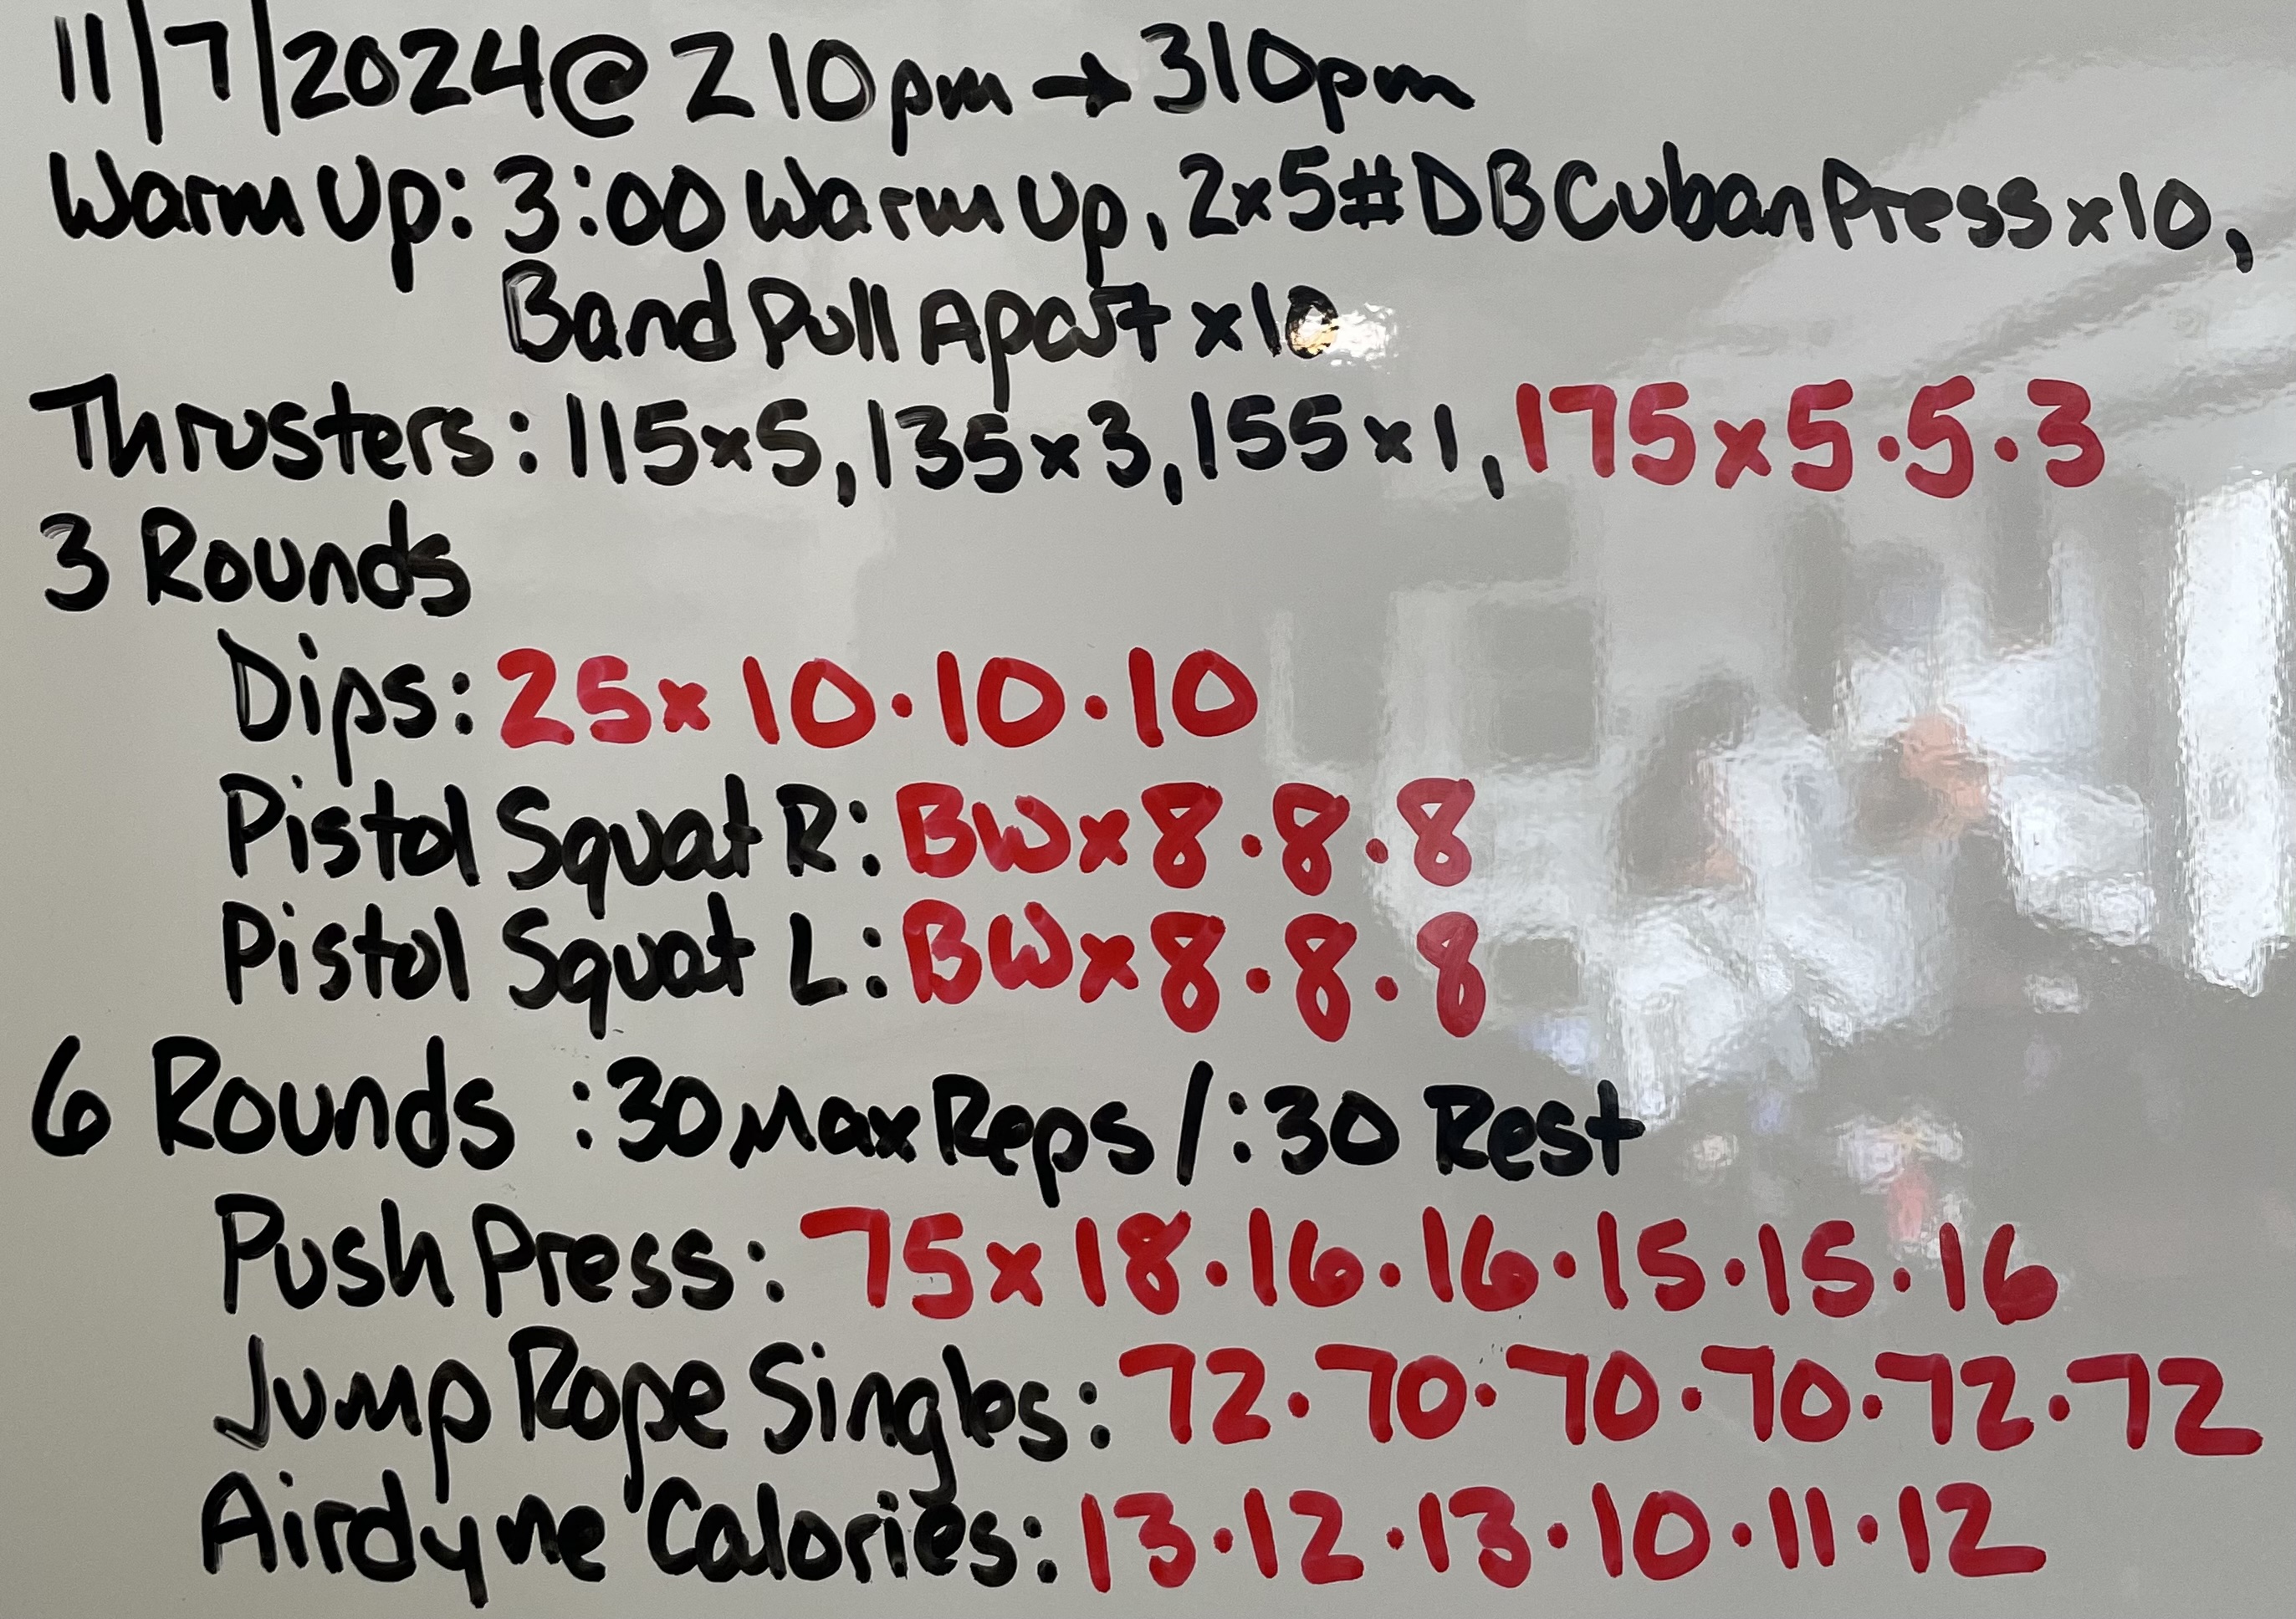 11/7/2024@ 210pm → 310pm
Warm Up: 3:00 Warm Up, 2x5# DB Cuban Press x10,
Band Pull Apart x10
Thrusters: 115x5, 135x3, 155x1, 175x5·5·3
3 Rounds
Dips: 25x 10·10·10
Pistol Squat R: BWx8·8·8
Pistol Squat L: BWx8·8·8
6 Rounds :30 Max Reps / :30 Rest
Push Press: 75x18·16·16·15·15·16
Jump Rope Singles: 72·70·70·70·72·72
Airdyne Calories: 13·12·13·10·11·12